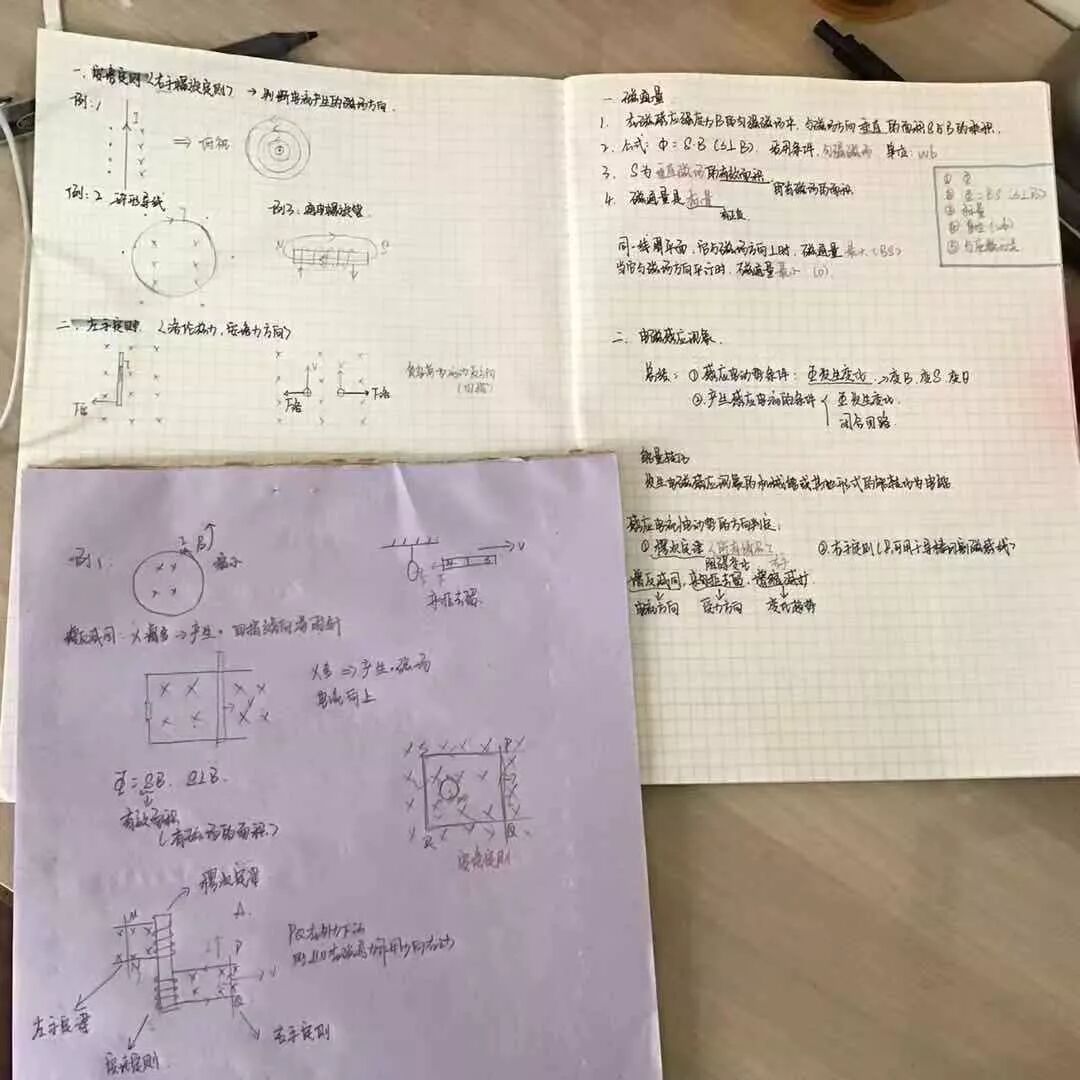 一、安培定则〈右手螺旋定则〉 → 判断电流产生的磁场方向.
例:1
I
⇒ 俯视
例:2 环形导线
I
例3:通电螺旋管
N S
二、左手定则 〈洛伦兹力,安培力方向〉
I
F安
V V
F洛 F洛
(四指)
一、磁通量
1. 在磁感应强度为B的匀强磁场中,与磁场方向垂直的面积S与B的乘积.
2. 公式: Φ = S·B (S⊥B). 适用条件,匀强磁场 单位: Wb
3. S为垂直磁场的有效面积.
即有磁场的面积
4. 磁通量是标量
① Φ
② Φ = BS (S⊥B)
③ 标量
④ 单位 (wb)
同一线圈平面,它与磁场方向⊥时,磁通量最大 (BS)
当它与磁场方向平行时,磁通量最小 (0).
二、电磁感应现象.
总结: ① 感应电动势条件: Φ发生变化 → 变B.变S.变θ
② 产生感应电流的条件 Φ发生变化.
闭合回路.
能量转化
发生电磁感应现象的机械能或其他形式的能转化为电能
感应电流/电动势的方向判定:
① 楞次定律
② 右手定则 (只可用于导体切割磁感线)
阻碍变化
增反减同, 来拒去留, 增缩减扩.
电流方向 受力方向 变化趋势
例1.
I B↑
V
来拒去留
增反减同: X增多 ⇒ 产生· 四指绕向
X多 ⇒ 产生·磁场
电流向上
V
Φ = SB. S⊥B.
有效面积
(有磁场的面积)
安培定则
楞次定律
M A.
N P
V
Q
左手定律
安培定则
右手定则